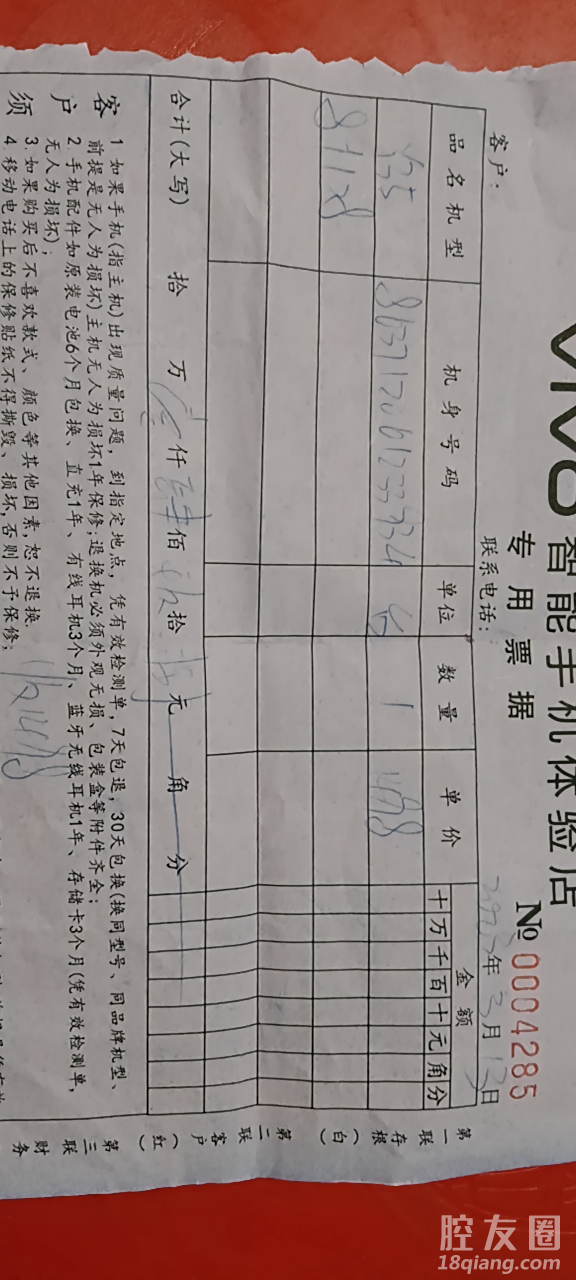 vivo智能手机体验店
专用票据
№ 0004285
客户：
联系电话：
年3月13日
品名机型 机身号码 单位 数量 单价 金额
十万千百十元角分
Y35 台 1
合计(大写) 拾 万 仟 佰 拾 元 角 分
客户须
1 如果手机(指主机)出现质量问题，到指定地点，凭有效检测单，7天包退，30天包换(换同型号、同品牌机型、
前提是无人为损坏)主机无人为损坏1年保修;退换机必须外观无损、包装盒等附件齐全;
2.手机配件如原装电池6个月包换、直充1年、有线耳机3个月、蓝牙无线耳机1年、存储卡3个月(凭有效检测单,
无人为损坏);
3.如果购买后不喜欢款式、颜色等其他因素,恕不退换.
4.移动电话上的保修贴纸不得撕毁、损坏,否则不予保修;
第一联存根(白)
第二联客户(红)
第三联财务
腔友圈
18qiang.com